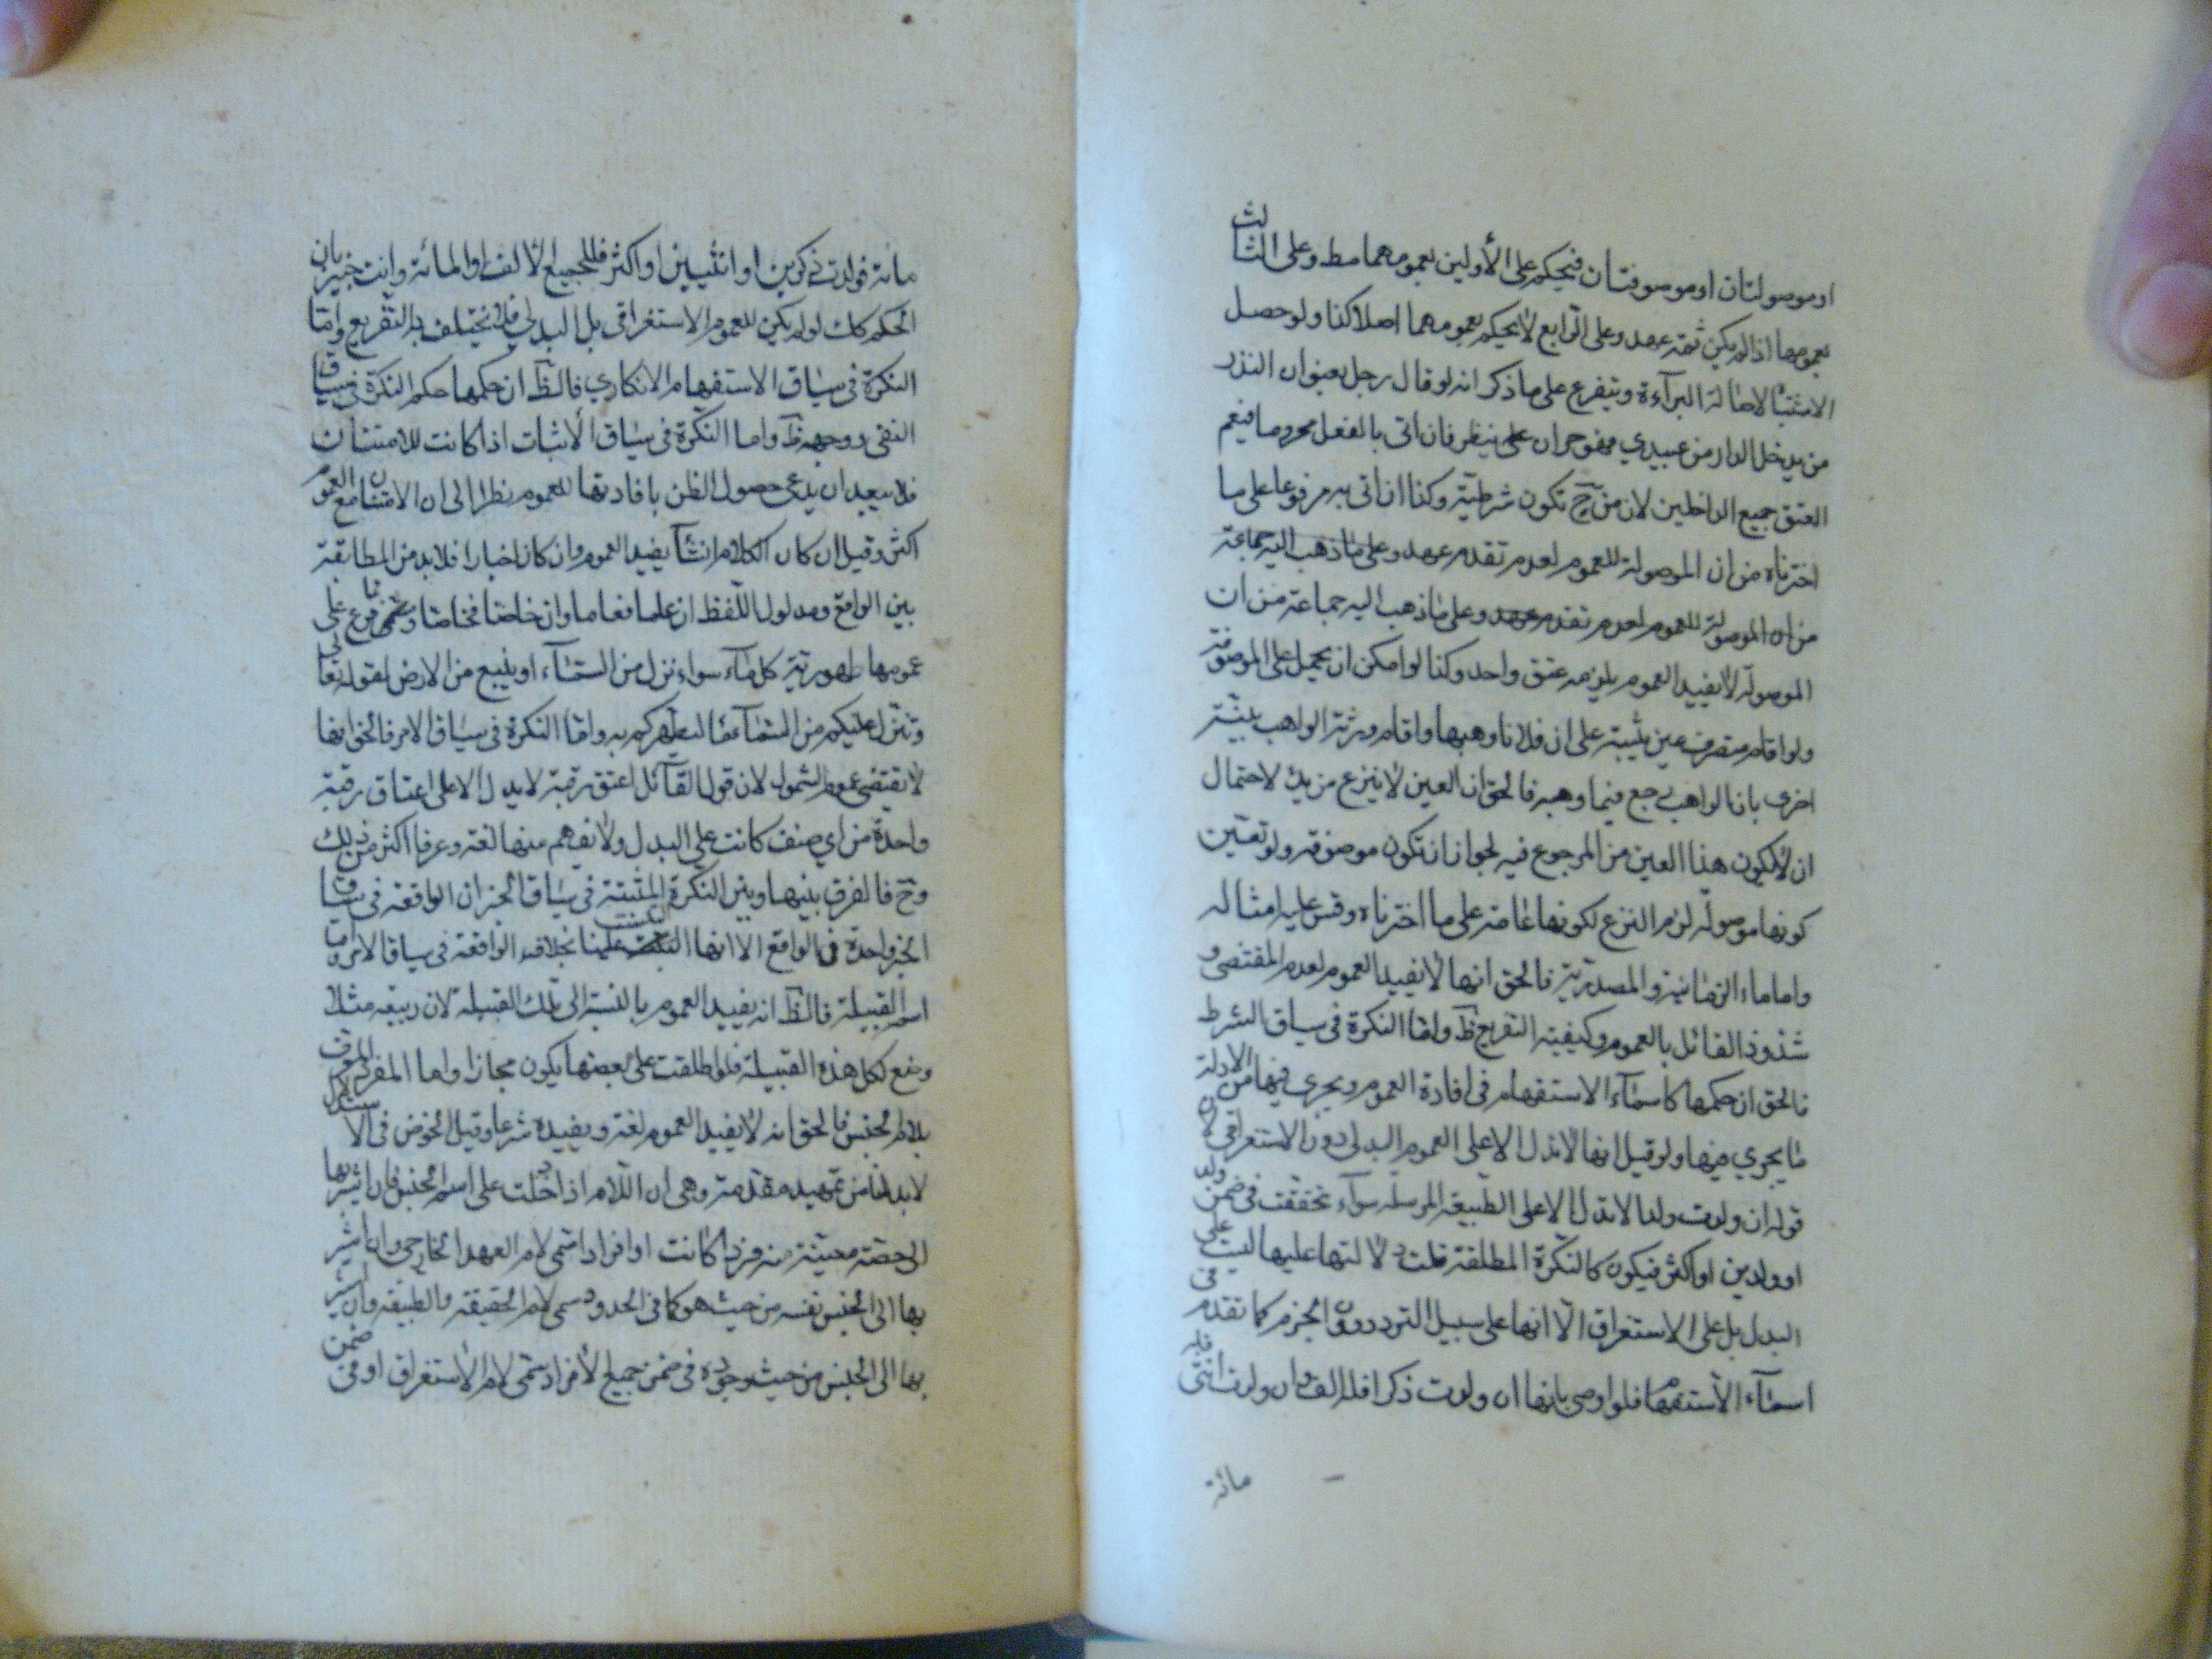 او موصولتان او موصوفتان فيحكم على الأولين بعمومهما مط وعلى الثالث
بعمومها اذا لم يكن ثمة عهد وعلى الرابع لا يحكم بعمومهما اصلا كذا ولو حصل
الاشتباه لاصالة البرآءة ويتفرع على ما ذكر انه لو قال رجل بعنوان النذر
من يدخل الدار من عبيدي فهو حر ان على ينظر فان اتى بالفعل مجزوما فيعم
العتق جميع الداخلين لان من ح تكون شرطية وكذا ان اتى به مرفوعا على ما
اخترناه من ان الموصولة للعموم لعدم تقدم عهد وعلى ما ذهب اليه جماعة
من ان الموصولة للعموم لعدم تقدم عهد وعلى ما ذهب اليه جماعة من ان
الموصولة لا يفيد العموم يلزمه عتق واحد وكذا لو امكن ان يحمل على الموصوفة
ولو اقام متصرف عين بيّنة على ان فلانا وهبها واقام ورثة الواهب بيّنة
اخرى بان الواهب رجع فيما وهبه فالحق ان العين لا ينزع من يده لاحتمال
ان لا يكون هذا العين من المرجوع فيه لجواز ان تكون موصوفة ولو تعيّن
كونها موصولة لزم النزع لكونها عامة على ما اخترناه وقس عليه امثاله
واما ماء الزمانية والمصدرية فالحق انها لا يفيد العموم لعدم المقتضى و
شذوذ القائل بالعموم وكيفية التفريع ظ واما النكرة في سياق الشرط
فالحق ان حكمها كاسمآء الاستفهام في افادة العموم ويجري فيها من الادلة
ما يجري فيها ولو قيل انها لا تدل الا على العموم البدلى دون الاستغراقى لان
قوله ان ولدت ولدا لا تدل الا على الطبيعة المرسلة سوآء تحققت في ضمن ولد
او ولدين او اكثر فيكون كالنكرة المطلقة قلت دلالتها عليها ليست على
البدل بل على الاستغراق الا انها على سبيل التردد دون الجزم كما تقدم في
اسمآء الاستفهام فلو اوصى بانها ان ولدت ذكرا فله الف وان ولدت انثى فلها
مائة
مائة فولدت ذكرين او انثيين او اكثر فللجميع الالف او المائة وانت خبير بان
الحكم كك لو لم يكن للعموم الاستغراقى بل البدلي فلا يختلف به التفريع واما
النكرة في سياق الاستفهام الانكاري فالظ ان حكمها حكم النكرة في سياق
النفى ووجهه ظ واما النكرة في سياق الأثبات اذا كانت للامتنان
فلا يبعد ان يدعى حصول الظن بافادتها للعموم نظرا الى ان الامتنان مع العموم
اكثر وقيل ان كان الكلام انشآ يفيد العموم وان كان اخبارا فلابد من المطابقة
بين الواقع ومدلول اللفظ ان عاما فعاما وان خاصا فخاصا ومما فرع على
عمومها طهورية كل مآء سواء نزل من السمآء او ينبع من الارض لقوله تعالى
وينزل عليكم من السمآء مآ ليطهركم به واما النكرة في سياق الامر فالحق انها
لا يقتضى عموم الشمول لان قول القآئل اعتق رقبة لا يدل الا على اعتاق رقبة
واحدة من اي صنف كانت على البدل ولا يفهم منها لغة وعرفا اكثر من ذلك
وح فالفرق بينها وبين النكرة المثبتة في سياق الخبر ان الواقعة في سياق
الخبر واحدة في الواقع الا انها التبست علينا بخلاف الواقعة في سياق الامر واما
اسم القبيلة فالظ انه يفيد العموم بالنسبة الى تلك القبيلة لان ربيعة مثلا
وضع لكل هذه القبيلة فلو اطلقت على بعضها يكون مجازا واما المفرد المعرف
بلام الجنس فالحق انه لا يفيد العموم لغة ويفيده شرعا وقبل الخوض في الاستدلال
لابد لنا من تمهيد مقدمة وهى ان اللام اذا دخلت على اسم الجنس فان اشير بها
الى حصة معينة منه فردا كانت او افرادا تسمى لام العهد الخارجى وان اشير
بها الى الجنس نفسه من حيث هو كما في الحدود سمى لام الحقيقة والطبيعة وان اشير
بها الى الجنس من حيث وجوده في ضمن جميع الأفراد تسمى لام الأستغراق او في ضمن